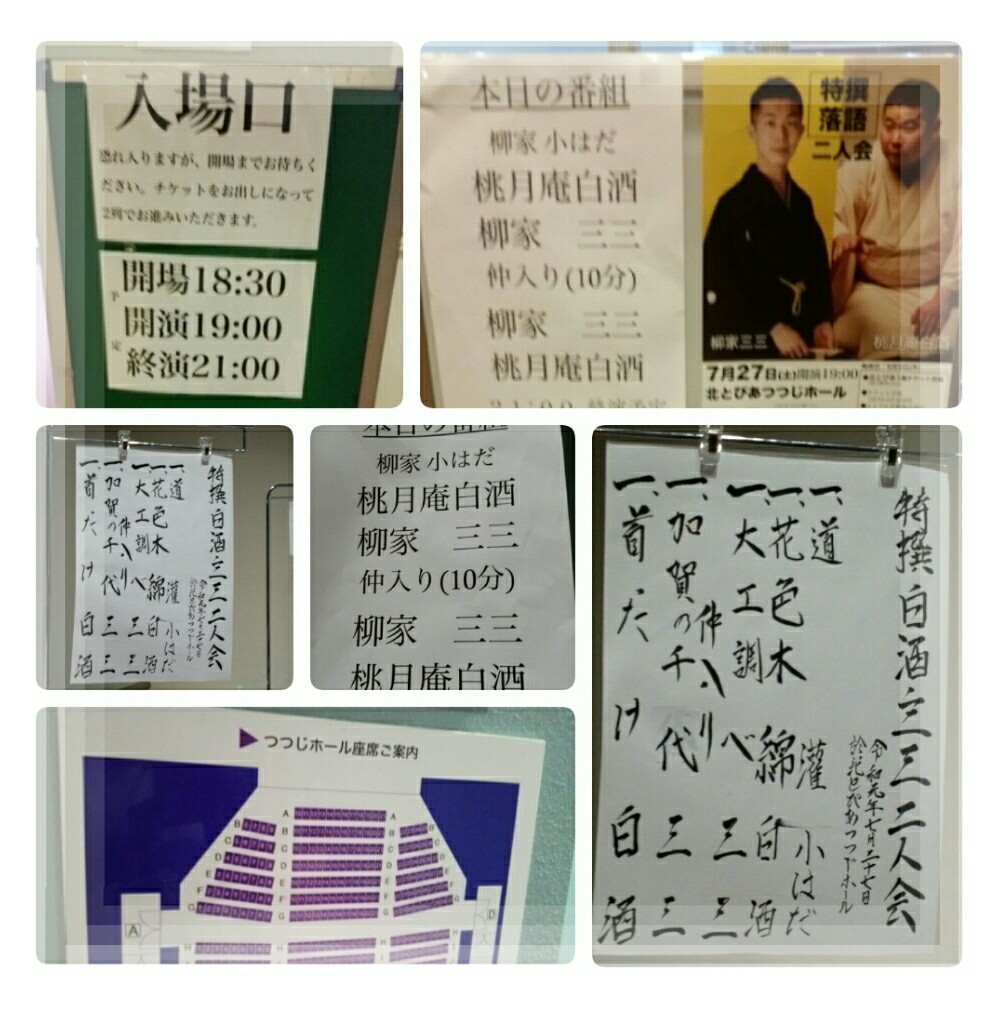 入場口
恐れ入りますが、開場までお待ちく
ださい。チケットをお出しになって
2列でお進みいただきます。
予定
開場18:30
開演19:00
終演21:00
本日の番組
柳家 小はだ
桃月庵白酒
柳家 三三
仲入り(10分)
柳家 三三
桃月庵白酒
21:00 終演予定
特撰
落語
二人会
柳家三三
桃月庵白酒
7月27日(土)開演19:00
北とぴあつつじホール
特撰白酒・三三二人会
令和元年七月二十七日
於北とぴあつつじホール
一、道灌 小はだ
一、花色木綿 白酒
一、大工調べ 三三
仲入り
一、加賀の千代 三三
一、首ったけ 白酒
本日の番組
柳家 小はだ
桃月庵白酒
柳家 三三
仲入り(10分)
柳家 三三
桃月庵白酒
特撰白酒・三三二人会
令和元年七月二十七日
於北とぴあつつじホール
一、道灌 小はだ
一、花色木綿 白酒
一、大工調べ 三三
仲入り
一、加賀の千代 三三
一、首ったけ 白酒
つつじホール座席ご案内
A A
B B B
C C C
D D D
E E E
F F F
G G G
H H H
A
D